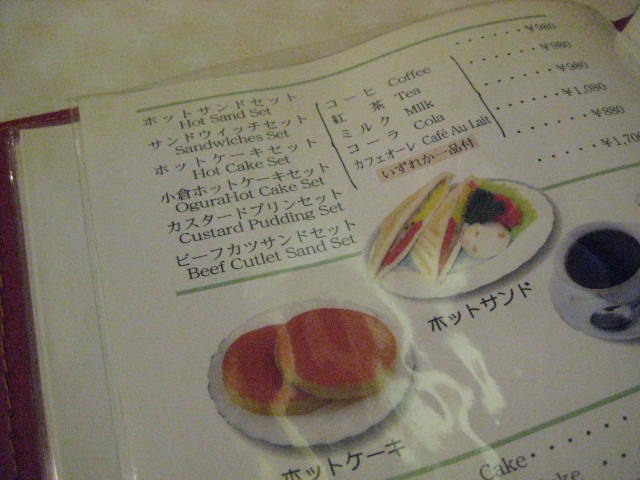 ホットサンドセット
Hot Sand Set
サンドウィッチセット
Sandwiches Set
ホットケーキセット
Hot Cake Set
小倉ホットケーキセット
OguraHot Cake Set
カスタードプリンセット
Custard Pudding Set
ビーフカツサンドセット
Beef Cutlet Sand Set
コーヒ Coffee
紅 茶 Tea
ミルク Milk
コーラ Cola
カフェオーレ Café Au Lait
いずれか一品付
¥980
¥980
¥980
¥1,080
¥880
ホットサンド
ホットケーキ
Cake